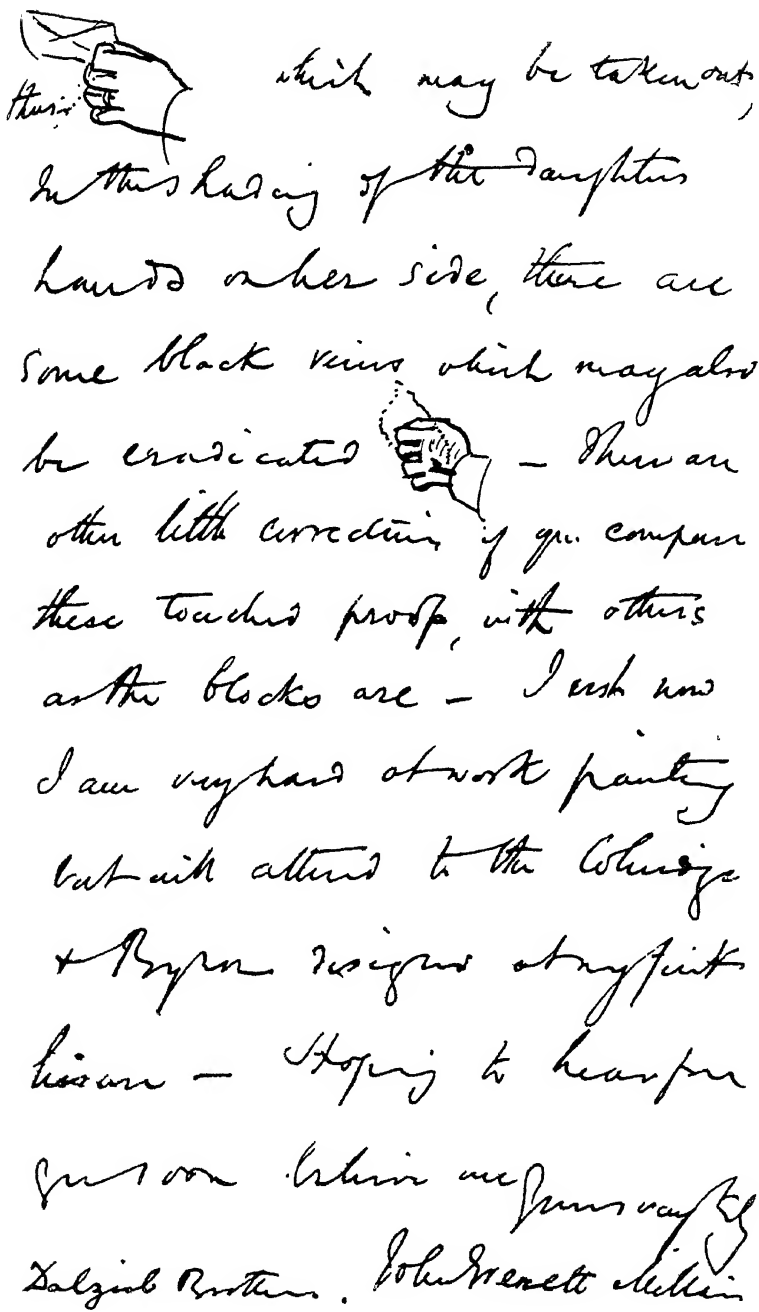 thus: which may be taken out,
In the shading of the daughters
hands on her side, there are
some black veins which may also
be eradicated — There are
other little corrections if you compare
these touched proofs, with others
as the blocks are — Just now
I am very hard at work painting
but will attend to the Coleridge
& Byron designs at my first
leisure — Hoping to hear from
you soon believe me Yours very truly
Dalziel Brothers. John Everett Millais